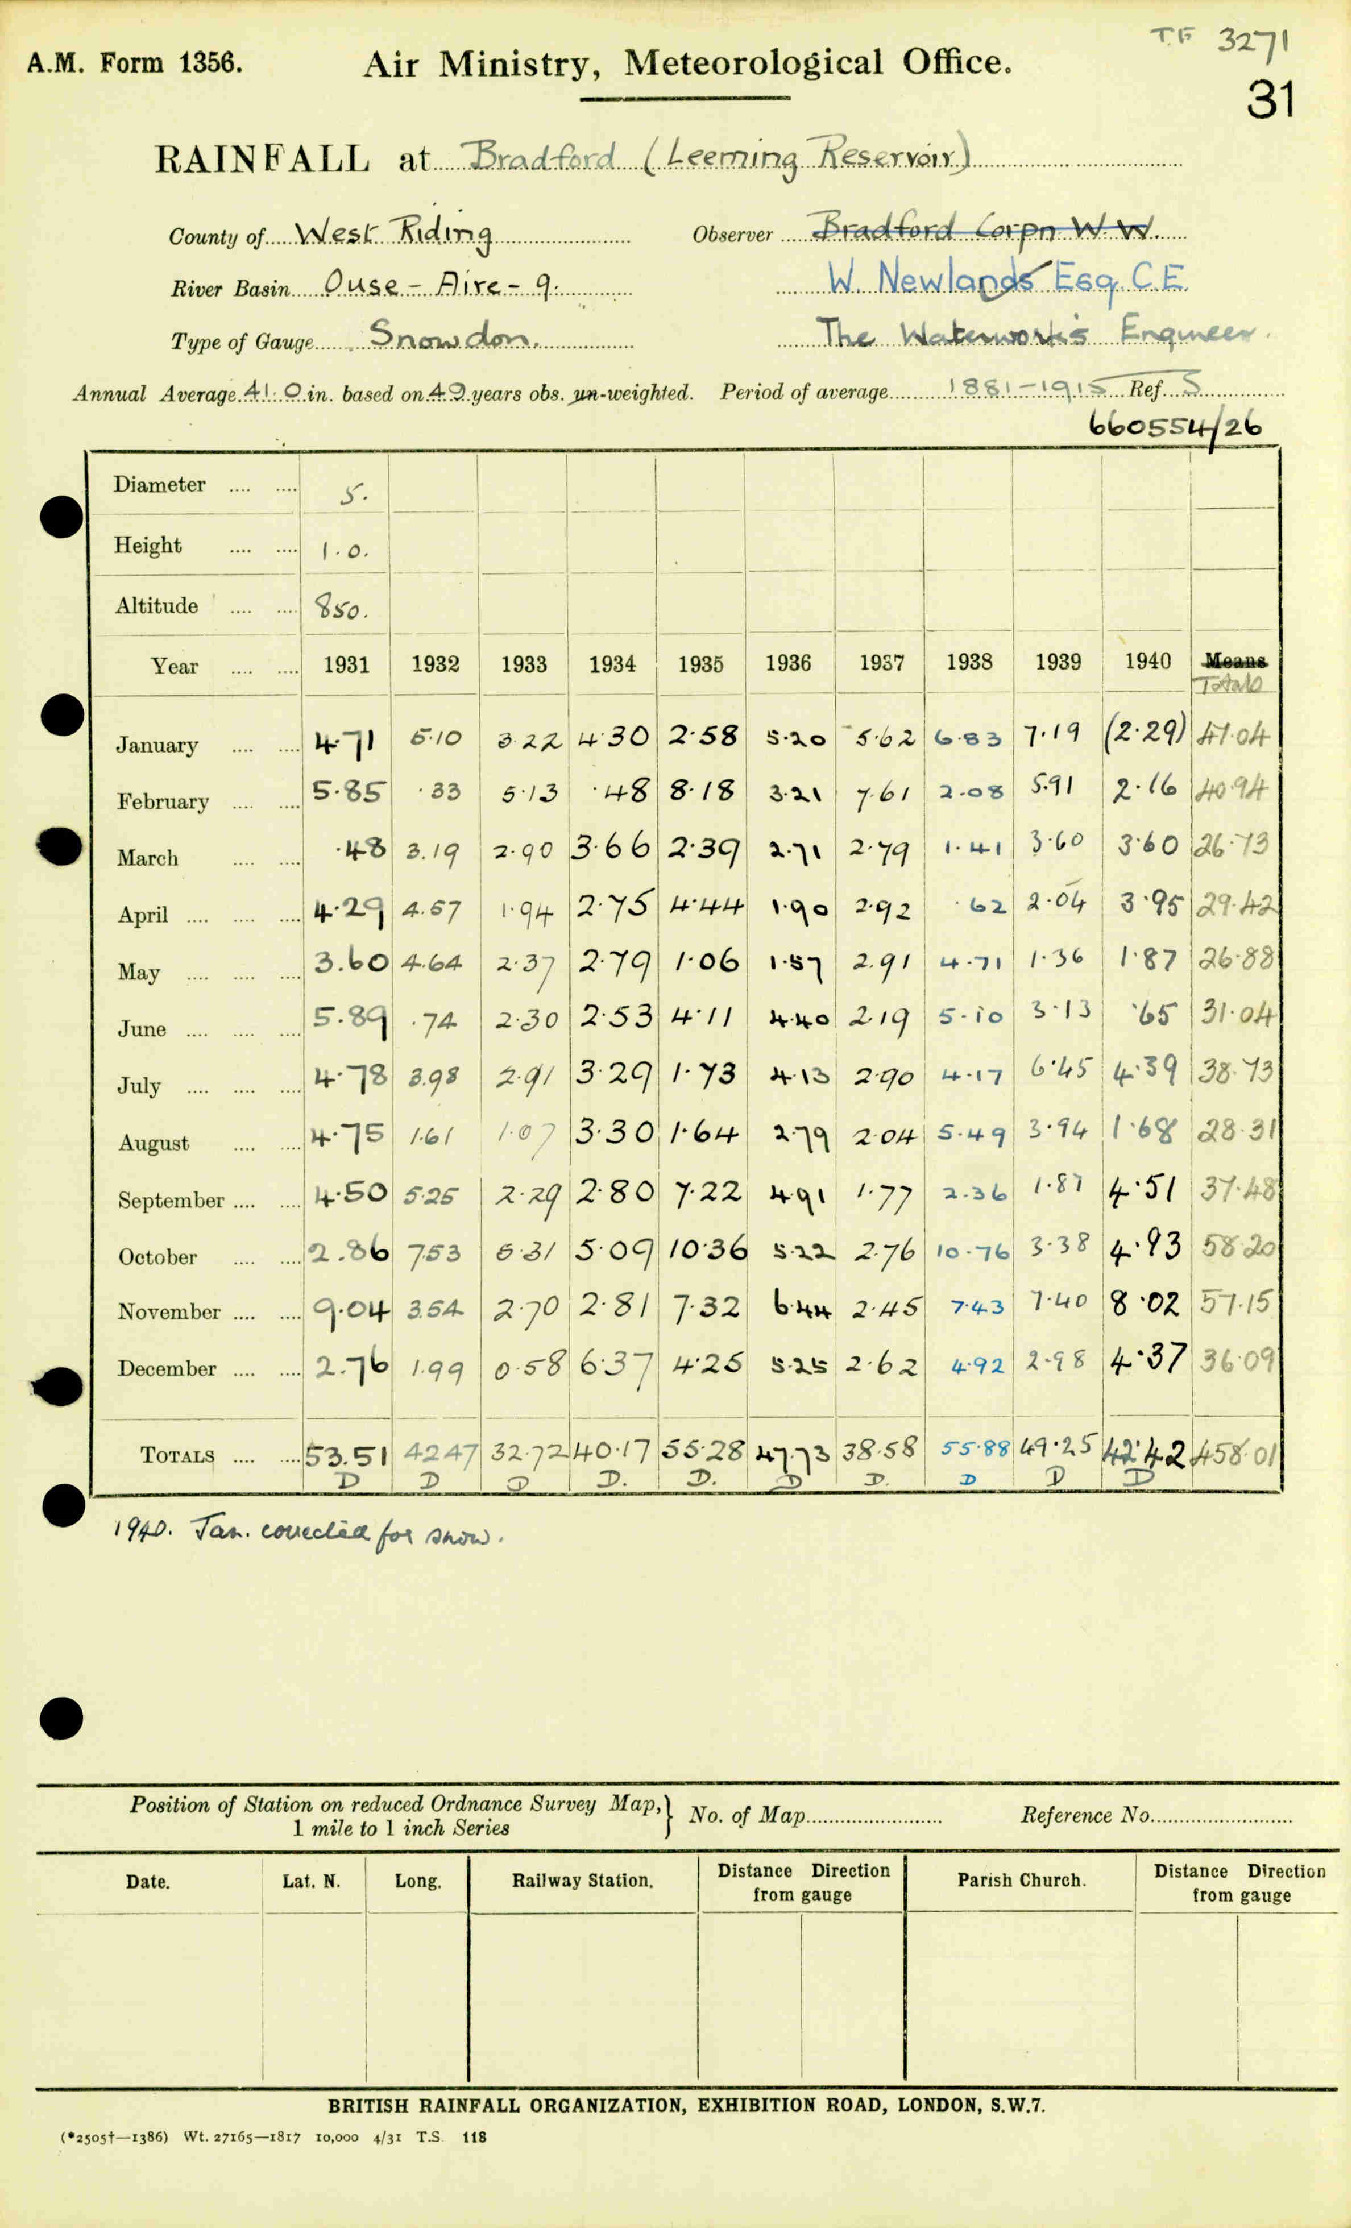 T.F 3271
A.M. Form 1356. Air Ministry, Meteorological Office.
31
RAINFALL at Bradford (Leeming Reservoir)
County of West Riding Observer Bradford Corpn W W.
River Basin Ouse - Aire - 9. W. Newlands Esq. C.E.
Type of Gauge Snowdon. The Waterworks Engineer.
Annual Average 41.0 in. based on 49 years obs. un-weighted. Period of average 1881-1915 Ref. S
660554/26
Diameter 5.
Height 1.0.
Altitude 850.
Year 1931 1932 1933 1934 1935 1936 1937 1938 1939 1940 Means
Totals
January 4.71 5.10 3.22 4.30 2.58 5.20 5.62 6.83 7.19 (2.29) 47.04
February 5.85 .33 5.13 .48 8.18 3.21 7.61 2.08 5.91 2.16 40.94
March .48 3.19 2.90 3.66 2.39 2.71 2.79 1.41 3.60 3.60 26.73
April 4.29 4.57 1.94 2.75 4.44 1.90 2.92 .62 2.04 3.95 29.42
May 3.60 4.64 2.37 2.79 1.06 1.57 2.91 4.71 1.36 1.87 26.88
June 5.89 .74 2.30 2.53 4.11 4.40 2.19 5.10 3.13 .65 31.04
July 4.78 3.98 2.91 3.29 1.73 4.13 2.90 4.17 6.45 4.39 38.73
August 4.75 1.61 1.07 3.30 1.64 2.79 2.04 5.49 3.94 1.68 28.31
September 4.50 5.25 2.29 2.80 7.22 4.91 1.77 2.36 1.87 4.51 37.48
October 2.86 7.53 5.31 5.09 10.36 5.22 2.76 10.76 3.38 4.93 58.20
November 9.04 3.54 2.70 2.81 7.32 6.44 2.45 7.43 7.40 8.02 57.15
December 2.76 1.99 0.58 6.37 4.25 5.25 2.62 4.92 2.98 4.37 36.09
TOTALS 53.51 42.47 32.72 40.17 55.28 47.73 38.58 55.88 49.25 42.42 458.01
D D D D. D. D D. D D D
1940. Jan. corrected for snow.
Position of Station on reduced Ordnance Survey Map, } No. of Map Reference No.
1 mile to 1 inch Series
Date. Lat. N. Long. Railway Station. Distance Direction from gauge Parish Church. Distance Direction from gauge
BRITISH RAINFALL ORGANIZATION, EXHIBITION ROAD, LONDON, S.W.7.
(*2505†—1386) Wt. 27165—1817 10,000 4/31 T.S. 118